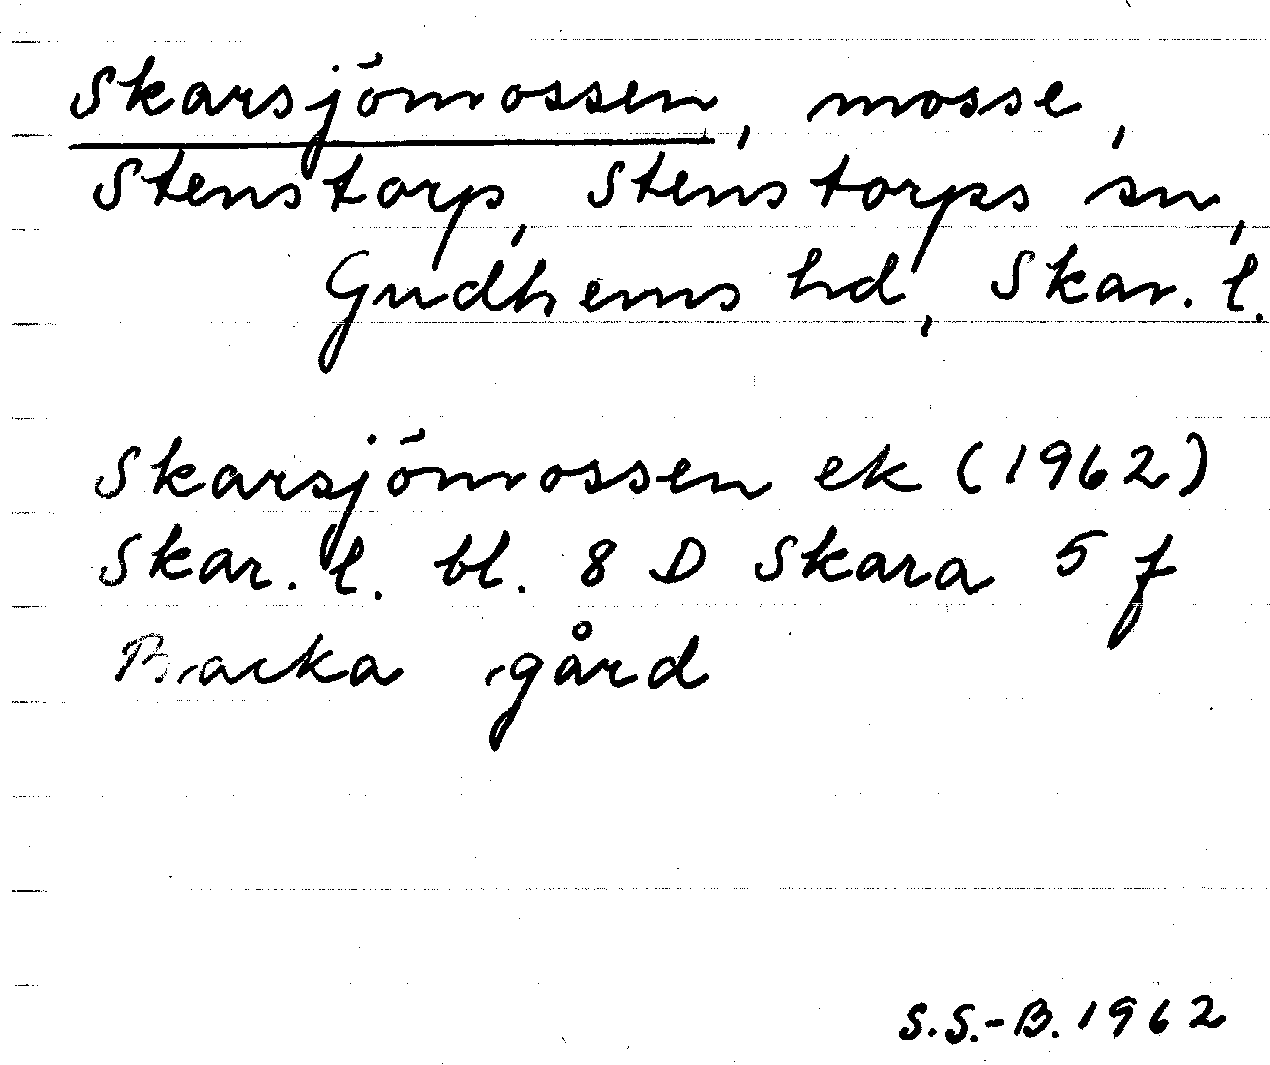 Skarsjömossen, mosse,
Stenstorp, Stenstorps sn,
Gudhems hd, Skar. l.
Skarsjömossen ek (1962)
Skar. l. bl. 8 D Skara 5 f
Backa gård
S.S.-B. 1962